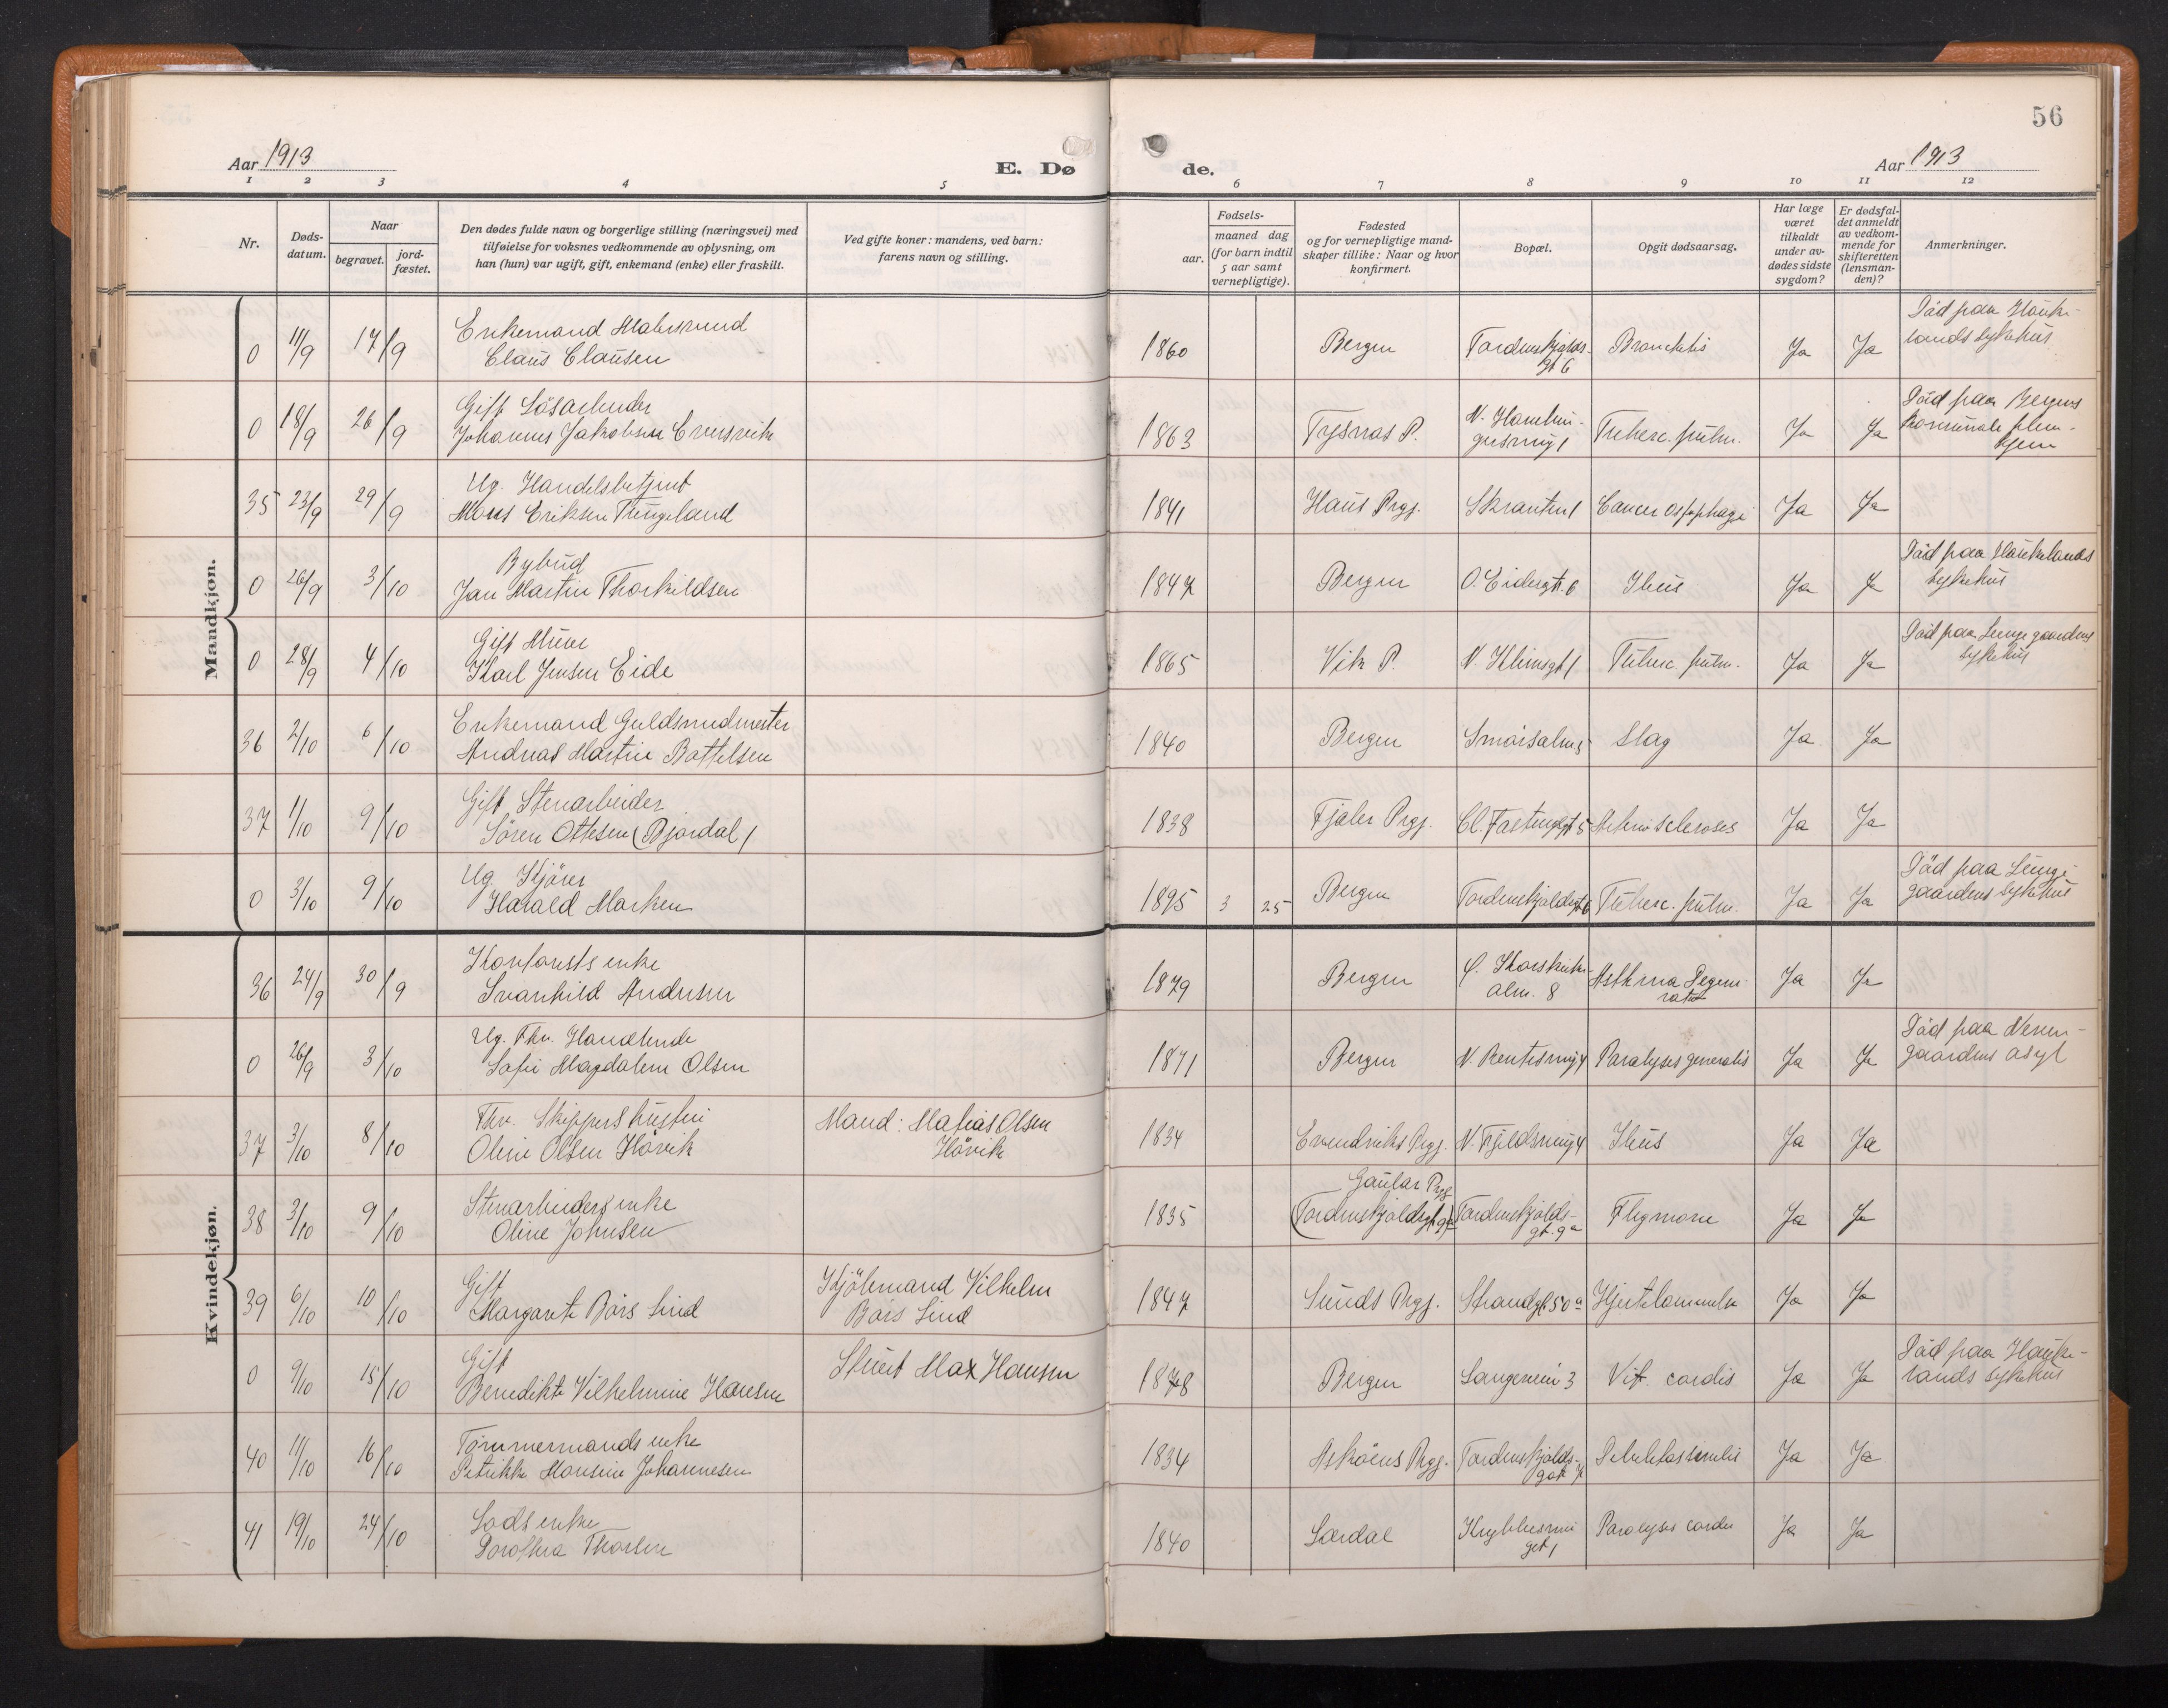 56
Aar 1913
E. Dø
de.
Aar 1913
1 2 3 4 5 6 7 8 9 10 11 12
Nr.
Døds-
datum.
Naar
begravet.
jord-
fæstet.
Den dødes fulde navn og borgerlige stilling (næringsvei) med
tilføielse for voksnes vedkommende av oplysning, om
han (hun) var ugift, gift, enkemand (enke) eller fraskilt.
Ved gifte koner: mandens, ved barn:
farens navn og stilling.
Fødsels-
aar.
maaned dag
(for barn indtil
5 aar samt
vernepligtige).
Fødested
og for vernepligtige mand-
skaper tillike: Naar og hvor
konfirmert.
Bopæl.
Opgit dødsaarsag.
Har læge
været
tilkaldt
under av-
dødes sidste
sygdom?
Er dødsfal-
det anmeldt
av vedkom-
mende for
skifteretten
(lensman-
den)?
Anmerkninger.
Mandkjøn.
Enkemand
0 11/9 17/9 Claus Clausen 1860 Bergen Tordenskjolds-
gt 6 Ja Ja
Död paa Hauke-
lands sykehus
Gift Lösarbeider
0 18/9 26/9 Johannes Jakobsen 1863 Tysnæs P. Tuberc. pulm. Ja Ja
Död paa Bergens
kommunale pleie-
hjem
Ug. Handelsbetjent
35 23/9 29/9 Mons Eriksen Tungeland 1841 Haus Prgj. Skranten 1 Cancer oesophagi Ja Ja
Bybud
0 26/9 3/10 Jan Martin Thorkildsen 1847 Bergen O. Eidesgt. 6 Ileus Ja Ja
Död paa Haukelands
sykehus
Gift Murer
0 28/9 4/10 Karl Jensen Eide 1865 Vik P. Tuberc. pulm. Ja Ja
Död paa Lungegaardens
sykehus
Enkemand Guldsmedmester
36 2/10 6/10 Andreas Martin Bottelsen 1840 Bergen Smörsalm 5 Slag Ja Ja
Gift Stenarbeider
37 1/10 9/10 Sören Ottesen (Bjordal) 1838 Fjaler Prgj. Cl. Fastingsgt 5 Arteriosclerosis Ja Ja
Ug. Kjörer
0 3/10 9/10 Harald Marken 1895 3 25 Bergen Tordenskjoldsgt 6 Tuberc. pulm. Ja Ja
Död paa Lunge-
gaardens sykehus
Kvindekjøn.
Kontorists enke
36 24/9 30/9 Svanhild Andersen 1879 Bergen Korskirke-
alm. 8 Asthma Degene-
ratio Ja Ja
Ug. Fhv. Handlende
0 26/9 3/10 Sofie Magdalene Olsen 1871 Bergen Paralyses generalis Ja Ja
Död paa Neven-
gaardens asyl
Fhv. Skippers hustru
37 3/10 8/10 Oline Olsen Hövik Mand: Matias Olsen
Hövik 1834 Evindviks Prgj. N. Fjeldsmug 4 Ileus Ja Ja
Stenarbeiders enke
38 3/10 9/10 Oline Johnsen 1835 Gaular Prgj
(Tordenskjoldsgt 9a) Tordenskjolds-
gt. 9a Flegmone Ja Ja
Gift
39 6/10 10/10 Margarete Börs Lind Kjöbmand Vilhelm
Börs Lind 1847 Sunds Prgj. Strandgt 50a Hjertelammelse Ja Ja
Gift
0 9/10 15/10 Benedikte Vilhelmine Hansen Stuert Max Hansen 1878 Bergen Langeveien 3 Vit. cordis Ja Ja
Död paa Hauke-
lands sykehus
Tömmermands enke
40 11/10 16/10 Petrikke Monsine Johannesen 1834 Asköens Prgj. Tordenskjolds-
gat 7 Debilitas senilis Ja Ja
Lods enke
41 19/10 24/10 Dorothea Thorsen 1840 Lærdal Krybbesmu
get 1 Paralysis cordis Ja Ja